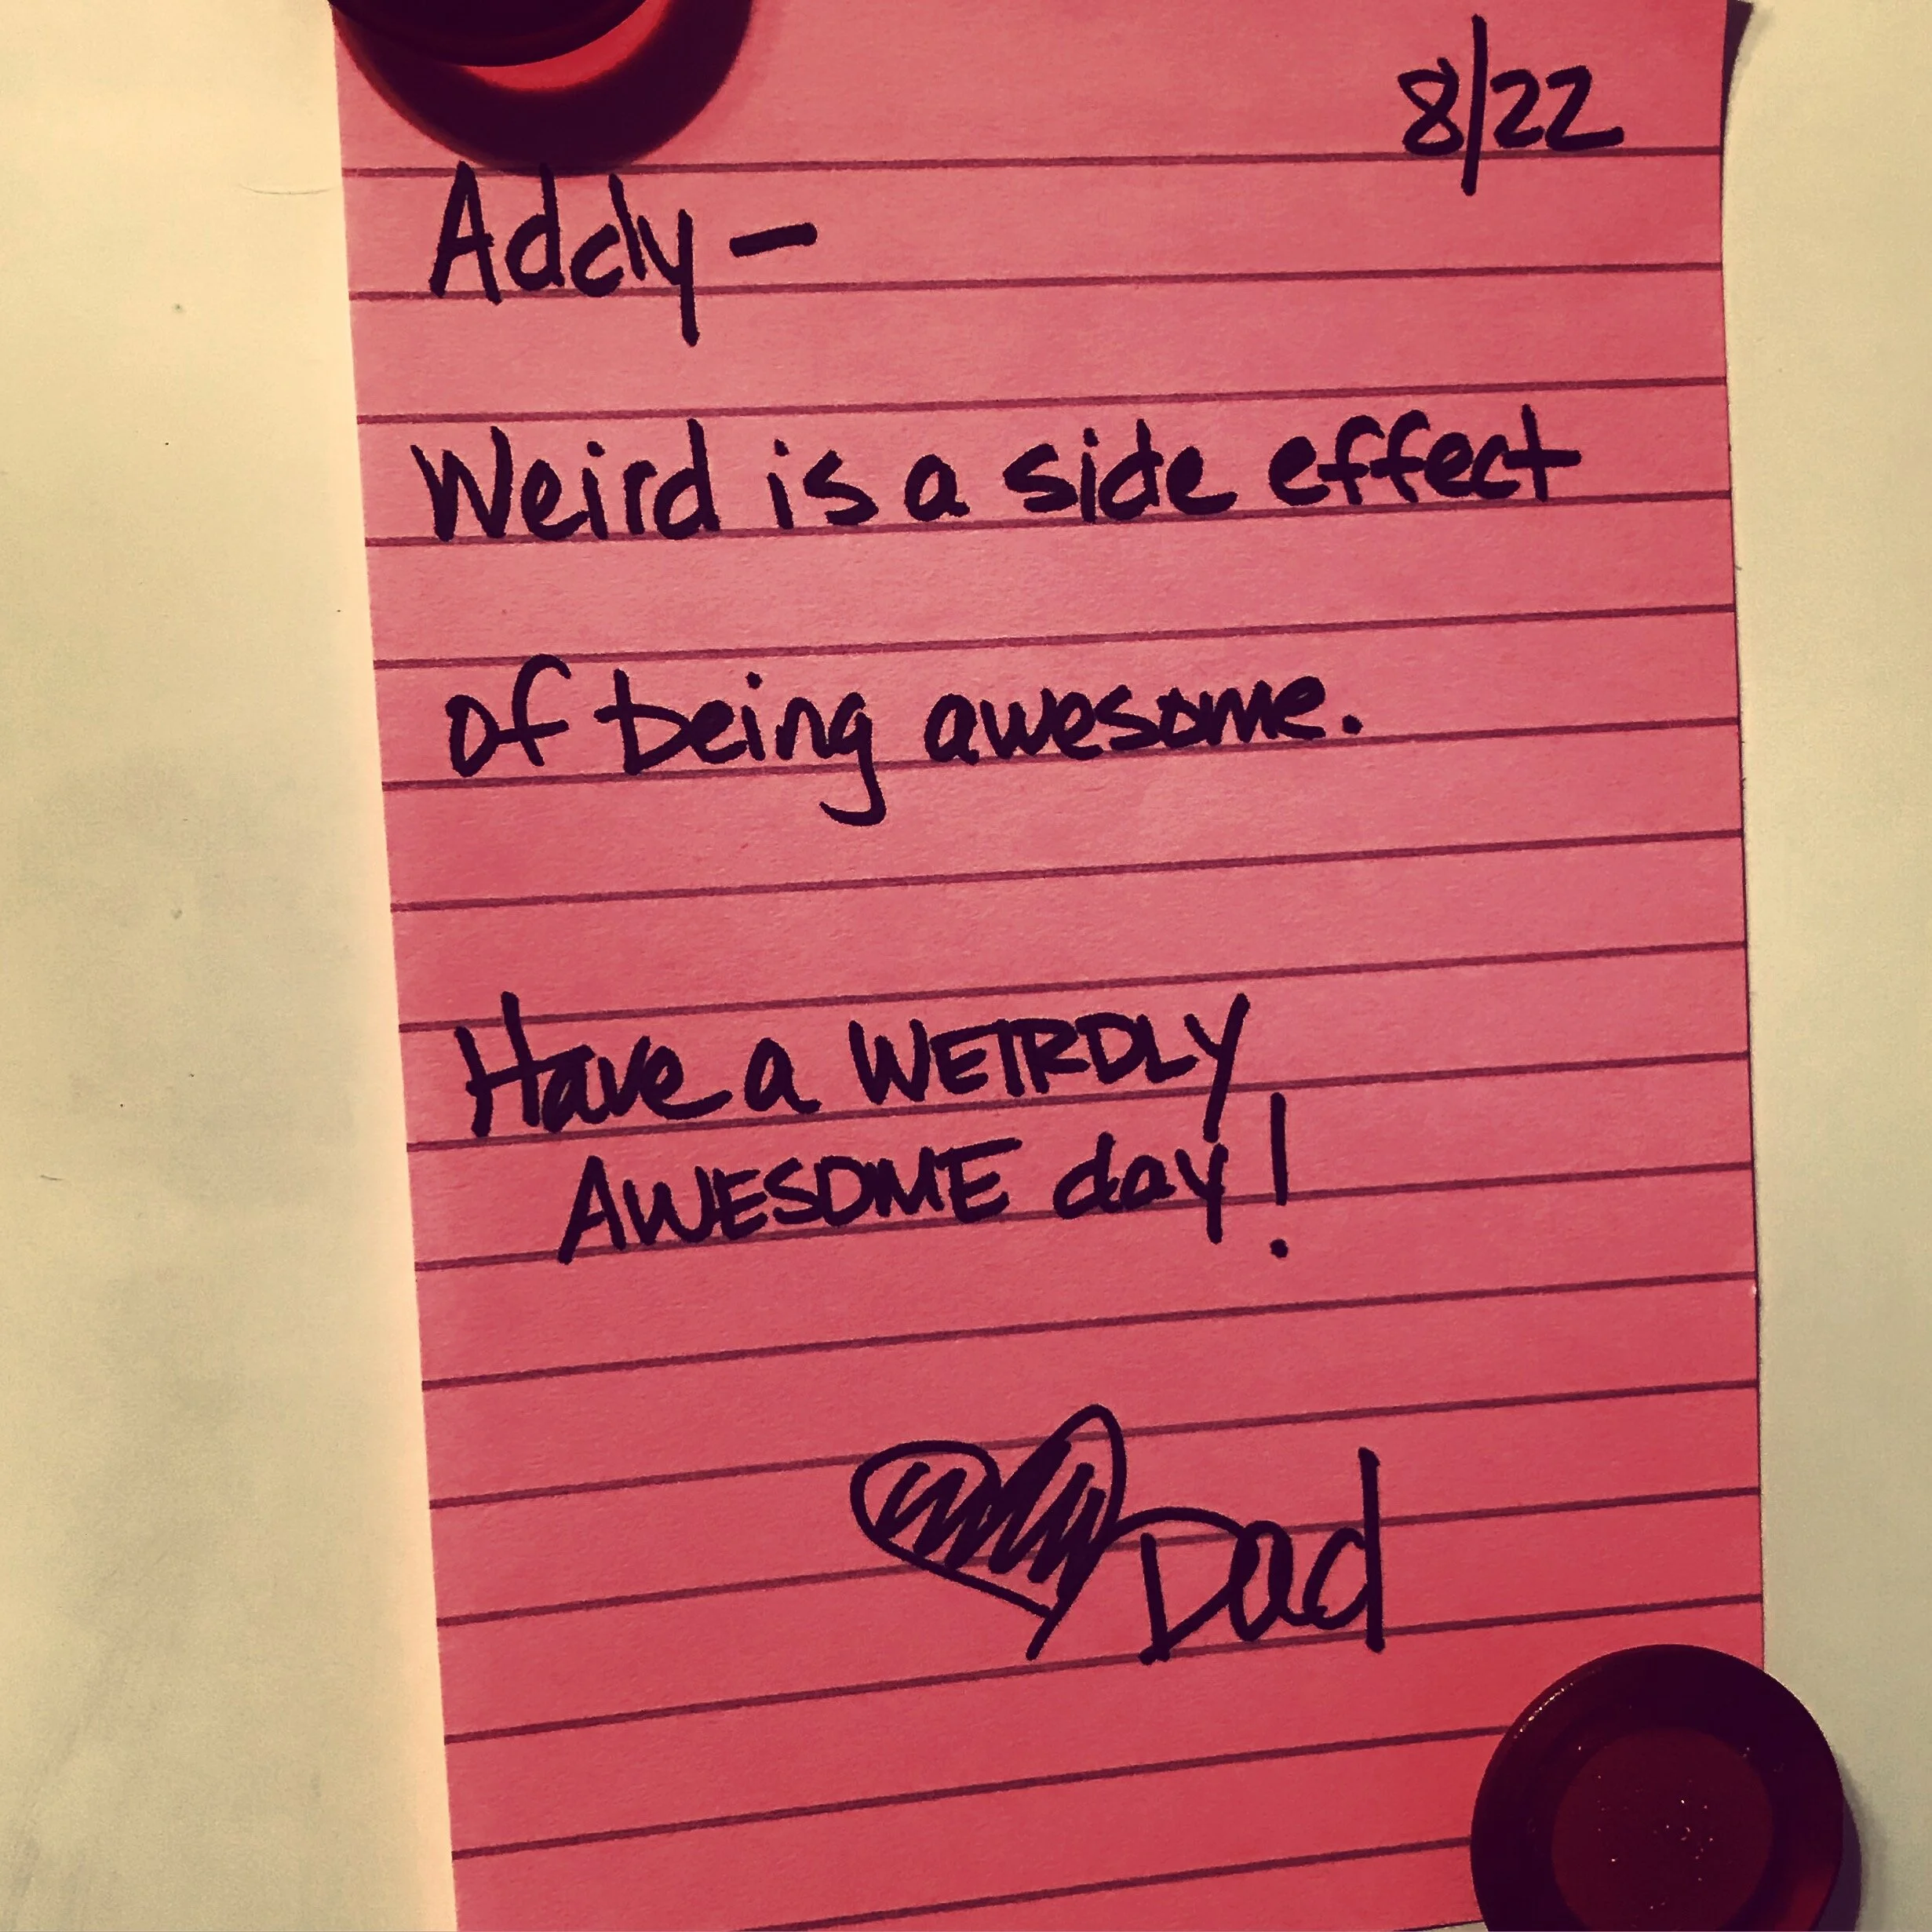 8/22
Addy –
Weird is a side effect
of being awesome.
Have a WEIRDLY
AWESOME day!
Dad